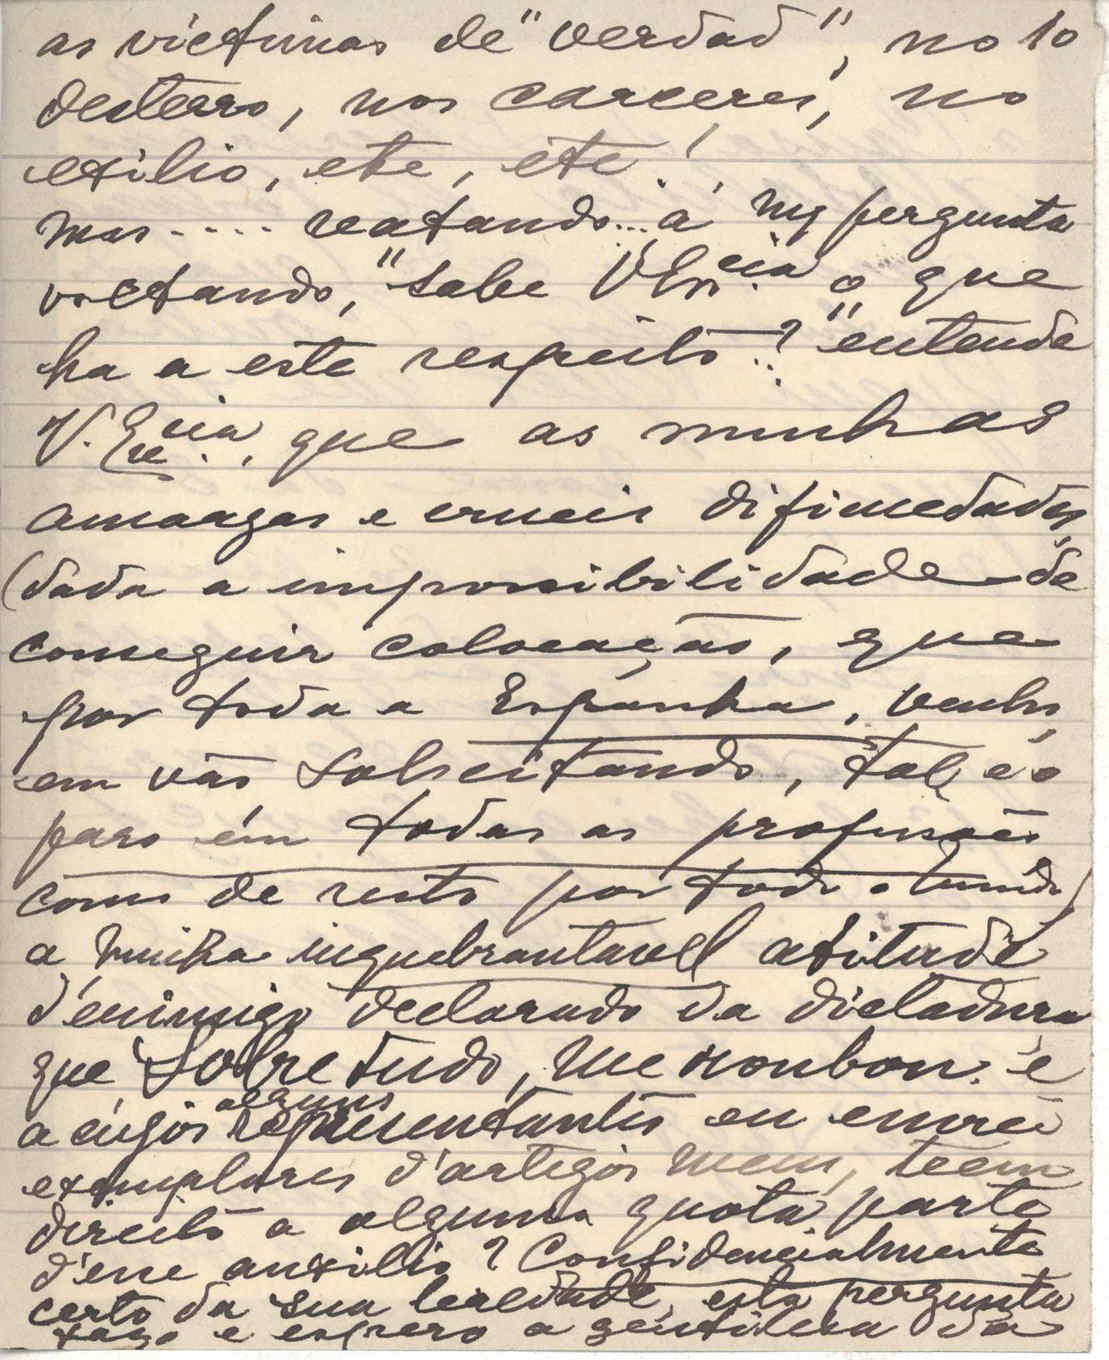 as victimas de "verdad", no 10
desterro, nos carceres, no
exilio, etc, etc!
mas.... reatando... á m/ pergunta
voltando, "sabe V. Ex.cia o que
ha a este respeito..?" entende
V. Ex.cia, que as minhas
amargas e crueis dificuldades,
(dada a impossibilidade de
conseguir colocação, que
por toda a Espanha, venho,
em vão solicitando, tal é o
paro em todas as profissões
como de resto por todo o mundo)
a minha inquebrantavel atitude
d'enimigo declarado da dictadura
que, sobretudo, me roubou: e
a cujos alguns representantes eu enviei
exemplares d'artigos meus, teem
direito a alguma quota parte
d'esse auxilio? Confidencialmente
certo da sua lealdade, esta pergunta
faço e espero a gentileza da